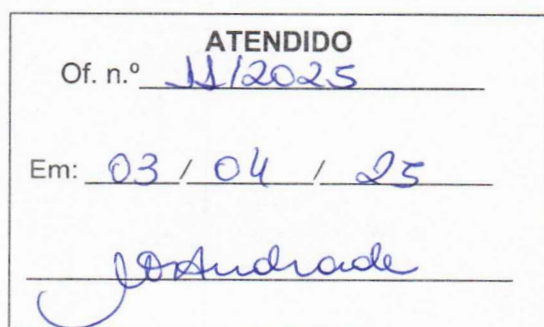 ATENDIDO
Of. n.º 11/2025
Em: 03 / 04 / 25
Andrade